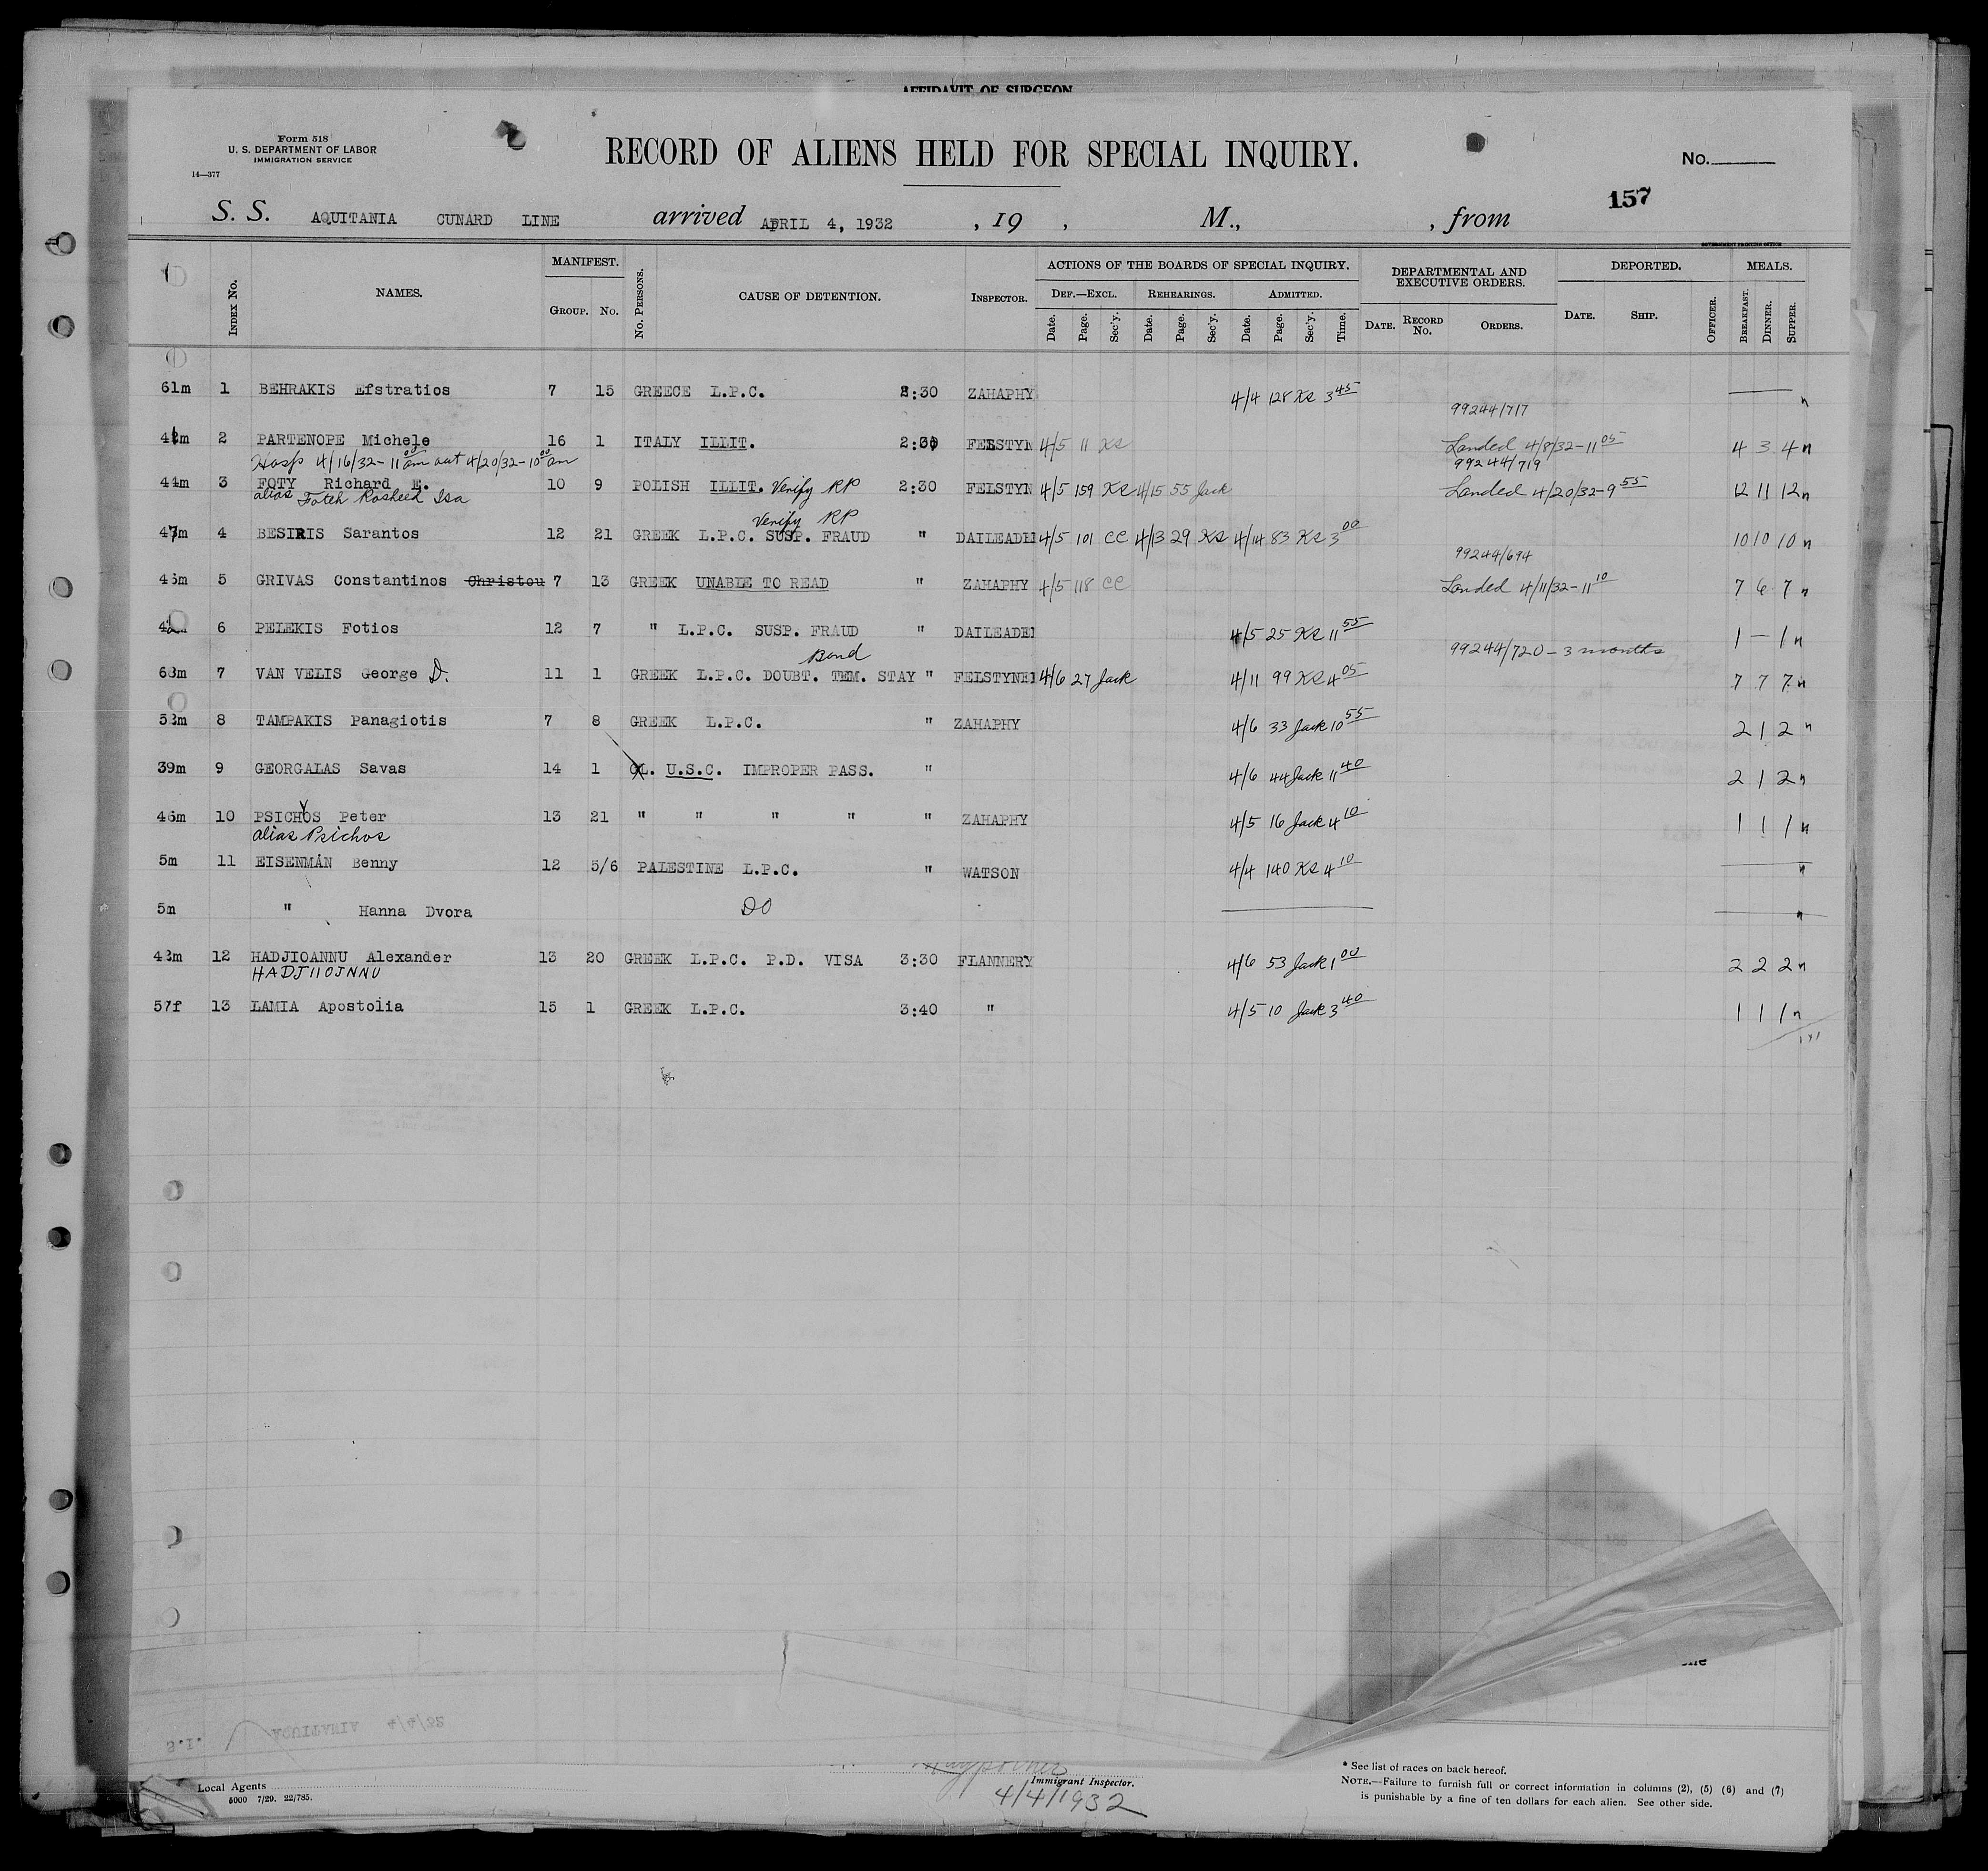 AFFIDAVIT OF SURGEON
Form 518
U. S. DEPARTMENT OF LABOR
IMMIGRATION SERVICE
14—377
RECORD OF ALIENS HELD FOR SPECIAL INQUIRY.
No.
157
S. S. AQUITANIA CUNARD LINE arrived APRIL 4, 1932 , 19 , M., , from
GOVERNMENT PRINTING OFFICE
INDEX No. NAMES. MANIFEST. GROUP. No. No. PERSONS. CAUSE OF DETENTION. INSPECTOR. ACTIONS OF THE BOARDS OF SPECIAL INQUIRY. DEPARTMENTAL AND EXECUTIVE ORDERS. DEPORTED. MEALS.
DEF.—EXCL. REHEARINGS. ADMITTED.
Date. Page. Sec'y. Date. Page. Sec'y. Date. Page. Sec'y. Time. DATE. RECORD No. ORDERS. DATE. SHIP. OFFICER. BREAKFAST. DINNER. SUPPER.
61m 1 BEHRAKIS Efstratios 7 15 GREECE L.P.C. 2:30 ZAHAPHY 4/4 128 KS 3 45 n
99244/717
m 2 PARTENOPE Michele 16 1 ITALY ILLIT. 2:30 FELSTYN 4/5 11 KS Landed 4/8/32-11 05 4 3 4 n
Hosp 4/16/32-11 00 am out 4/20/32-10 00 am
99244/719
44m 3 FOTY Richard E. 10 9 POLISH ILLIT. Verify RP 2:30 FELSTYN 4/5 159 KS 4/15 55 Jack Landed 4/20/32-9 55 12 11 12 n
alias Foteh Rasheed Isa
Verify RP
47m 4 BESIRIS Sarantos 12 21 GREEK L.P.C. SUSP. FRAUD " DAILEADE 4/5 101 CC 4/13 29 KS 4/14 83 KS 3 00 10 10 10 n
99244/694
m 5 GRIVAS Constantinos Christou 7 13 GREEK UNABLE TO READ " ZAHAPHY 4/5 118 CC Landed 4/11/32-11 10 7 6 7 n
6 PELEKIS Fotios 12 7 " L.P.C. SUSP. FRAUD " DAILEADE 4/5 25 KS 11 55 1 — 1 n
Bond
99244/720-3 months
m 7 VAN VELIS George D. 11 1 GREEK L.P.C. DOUBT. TEM. STAY " FELSTYNE 4/6 27 Jack 4/11 99 KS 4 05 7 7 7 n
m 8 TAMPAKIS Panagiotis 7 8 GREEK L.P.C. " ZAHAPHY 4/6 33 Jack 10 55 2 1 2 n
39m 9 GEORGALAS Savas 14 1 CL. U.S.C. IMPROPER PASS. " 4/6 44 Jack 11 40 2 1 2 n
46m 10 PSICHYOS Peter 13 21 " " " " " ZAHAPHY 4/5 16 Jack 4 10 1 1 1 n
alias Psichos
5m 11 EISENMAN Benny 12 5/6 PALESTINE L.P.C. " WATSON 4/4 140 KS 4 10 n
5m " Hanna Dvora DO n
m 12 HADJIOANNU Alexander 13 20 GREEK L.P.C. P.D. VISA 3:30 FLANNERY 4/6 53 Jack 1 00 2 2 2 n
HADJIIOJNNU
57f 13 LAMIA Apostolia 15 1 GREEK L.P.C. 3:40 " 4/5 10 Jack 3 40 1 1 1 n
S.I. AQUITANIA 4/4/32
Local Agents
5000 7/29. 22/785.
Immigrant Inspector.
4/4/1932
* See list of races on back hereof.
NOTE.—Failure to furnish full or correct information in columns (2), (5) (6) and (7)
is punishable by a fine of ten dollars for each alien. See other side.